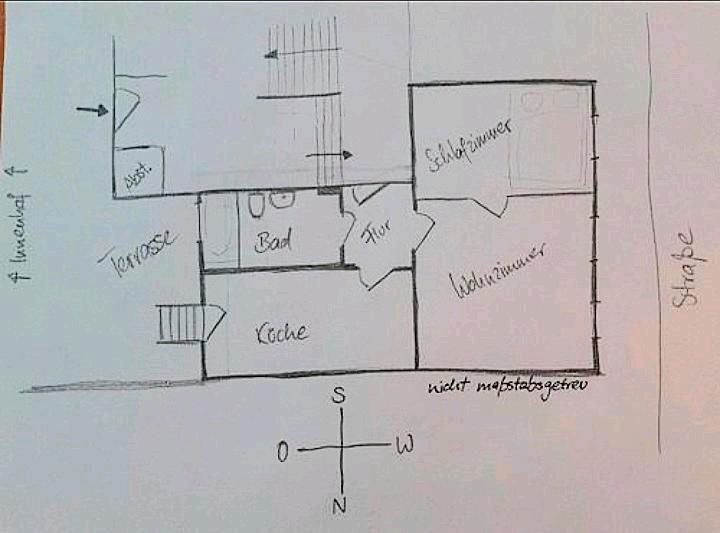 Abst.
↑ Innenhof ↑
Terrasse
Bad
Flur
Schlafzimmer
Wohnzimmer
Küche
Straße
nicht maßstabsgetreu
S
O
W
N